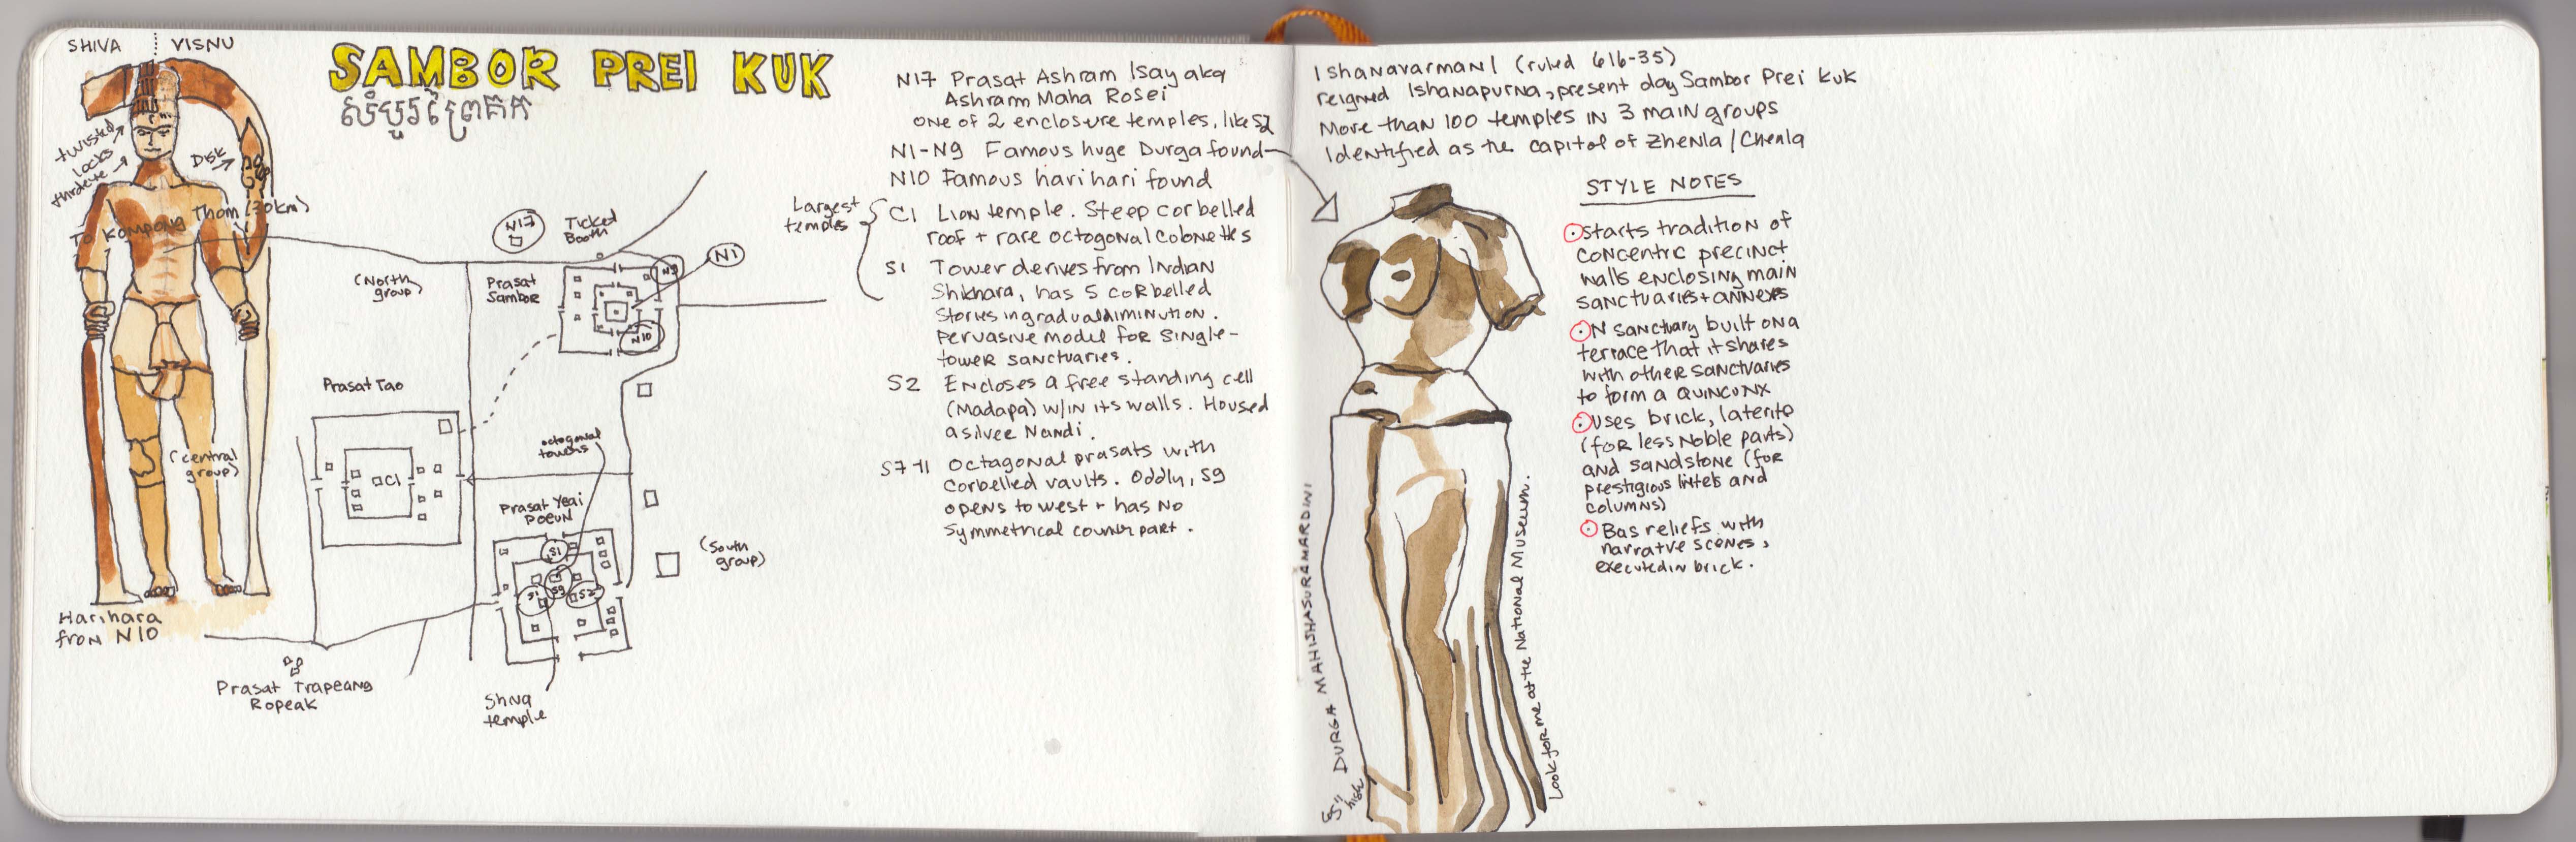 SHIVA VISNU
SAMBOR PREI KUK
សំបូរព្រៃគុក
twisted
locks
thirdeye
Disk
To Kompong Thom (30km)
Harihara
from N10
(North
group)
N17
Ticket
Booth
Prasat
Sambor
N9
N1
N10
Prasat Tao
(central
group)
C1
octogonal
towers
Prasat Yeai
Poeun
S1
S9
S2
(South
group)
Prasat Trapeang
Ropeak
Shiva
temple
N17 Prasat Ashram Isay aka
Ashram Maha Rosei
one of 2 enclosure temples, like S2
N1-N9 Famous huge Durga found
N10 Famous harihari found
Largest
temples
C1 Lion temple. Steep corbelled
roof + rare octogonal colonettes
S1 Tower derives from Indian
Shikhara, has 5 corbelled
stories in gradual diminution.
Pervasive model for single-
tower sanctuaries.
S2 Encloses a free standing cell
(Madapa) w/in its walls. Housed
a silver Nandi.
S7-11 octagonal prasats with
corbelled vaults. Oddly, S9
opens to west + has no
symmetrical counterpart.
Ishanavarman I (ruled 616-35)
reigned Ishanapurna, present day Sambor Prei Kuk
More than 100 temples in 3 main groups
Identified as the capitol of Zhenla/Chenla
STYLE NOTES
starts tradition of
concentric precinct
walls enclosing main
sanctuaries + annexes
N sanctuary built on a
terrace that it shares
with other sanctuaries
to form a quincunx
uses brick, laterite
(for less noble parts)
and sandstone (for
prestigious lintels and
columns)
Bas reliefs with
narrative scenes,
executed in brick.
DURGA MAHISHASURAMARDINI
55" high
Look for me at the National Museum.